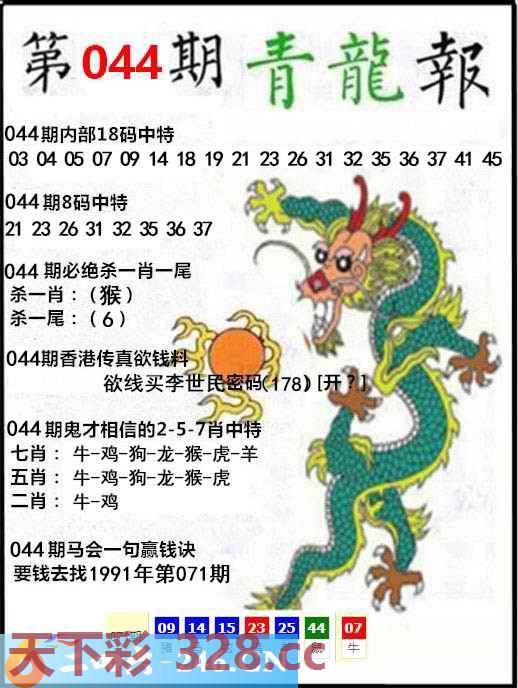 第044期青龍報
044期内部18码中特
03 04 05 07 09 14 18 19 21 23 26 31 32 35 36 37 41 45
044期8码中特
21 23 26 31 32 35 36 37
044 期必绝杀一肖一尾
杀一肖：（猴）
杀一尾：（6）
044期香港传真欲钱料
欲线买李世民密码(178) [开?]
044期鬼才相信的2-5-7肖中特
七肖：牛-鸡-狗-龙-猴-虎-羊
五肖：牛-鸡-狗-龙-猴-虎
二肖：牛-鸡
044期马会一句赢钱诀
要钱去找1991年第071期
09 14 15 23 25 44 07
猪 牛
天下彩-328.cc